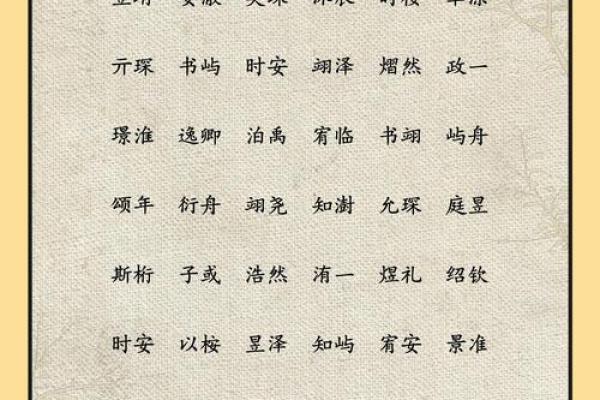 亓琛 书屿 时安 翊泽 熠然 政一
璟淮 逸卿 泊禹 宥临 书翊 屿舟
颂年 衍舟 翊尧 知澍 允琛 庭昱
斯桁 子或 浩然 洧一 煜礼 绍钦
时安 以桉 昱泽 知屿 宥安 景准